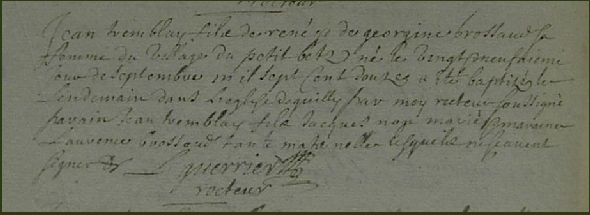 recteur
Jean tremblay fils de rené & de georgine brossaud sa
femme du village du petit betz né le vingt neufaiemе
jour de septembre mil sept cent douze a été baptizé le
lendemain dans l'eglise de quilly par moy recteur soussigné
parain Jean tremblay fils Jacques non marié & maraine
Laurence brossaud tante maternelle lesquels ne scavent
signer
L guerrier
recteur